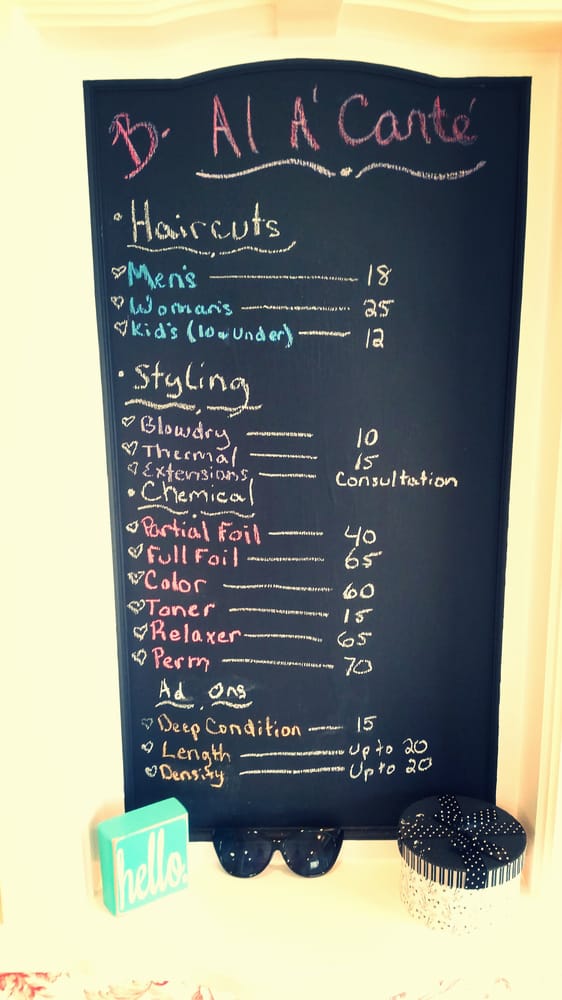 B. Al A' Canté
Haircuts
Men's 18
Woman's 25
Kid's (10 & Under) 12
Styling
Blowdry 10
Thermal 15
Extensions Consultation
Chemical
Partial Foil 40
Full Foil 65
Color 60
Toner 15
Relaxer 65
Perm 70
Ad Ons
Deep Condition 15
Length Up to 20
Density Up to 20
hello.